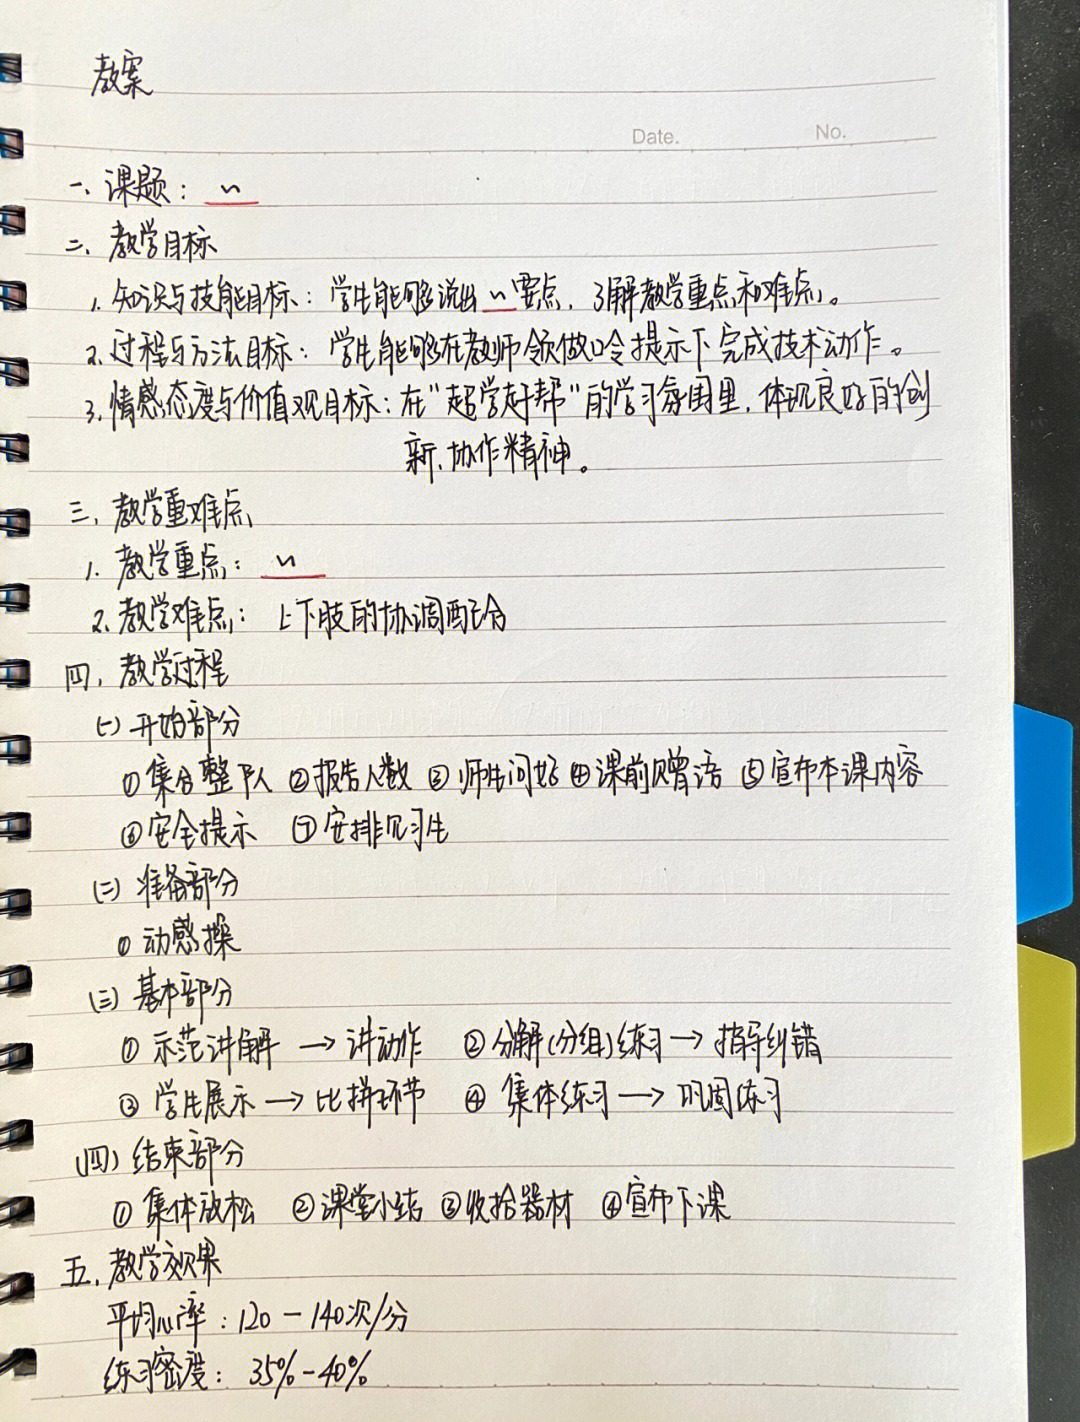 教案
Date. No.
一、课题：~
二、教学目标
1. 知识与技能目标：学生能够说出~要点，了解教学重点和难点。
2. 过程与方法目标：学生能够在教师领做口令提示下完成技术动作。
3. 情感态度与价值观目标：在“超学好帮”的学习氛围里，体现良好的创
新、协作精神。
三、教学重难点
1. 教学重点：~
2. 教学难点：上下肢的协调配合
四、教学过程
(一) 开始部分
①集合整队 ②报告人数 ③师生问好 ④课前赠语 ⑤宣布本课内容
⑥安全提示 ⑦安排见习生
(二) 准备部分
① 动感操
(三) 基本部分
① 示范讲解 → 讲动作 ② 分解(分组)练习 → 指导纠错
③ 学生展示 → 比拼环节 ④ 集体练习 → 巩固练习
(四) 结束部分
① 集体放松 ②课堂小结 ③收拾器材 ④宣布下课
五、教学效果
平均心率：120-140次/分
练习密度：35%-40%